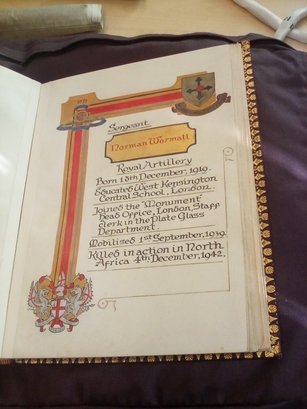 Sergeant
Norman Wormall
Royal Artillery
Born 13th December, 1919.
Educated West Kensington
Central School, London.
Joined the "Monument"
Head Office, London, Staff
clerk in the Plate Glass
Department.
Mobilised 1st September, 1939.
Killed in action in North
Africa 4th December, 1942.